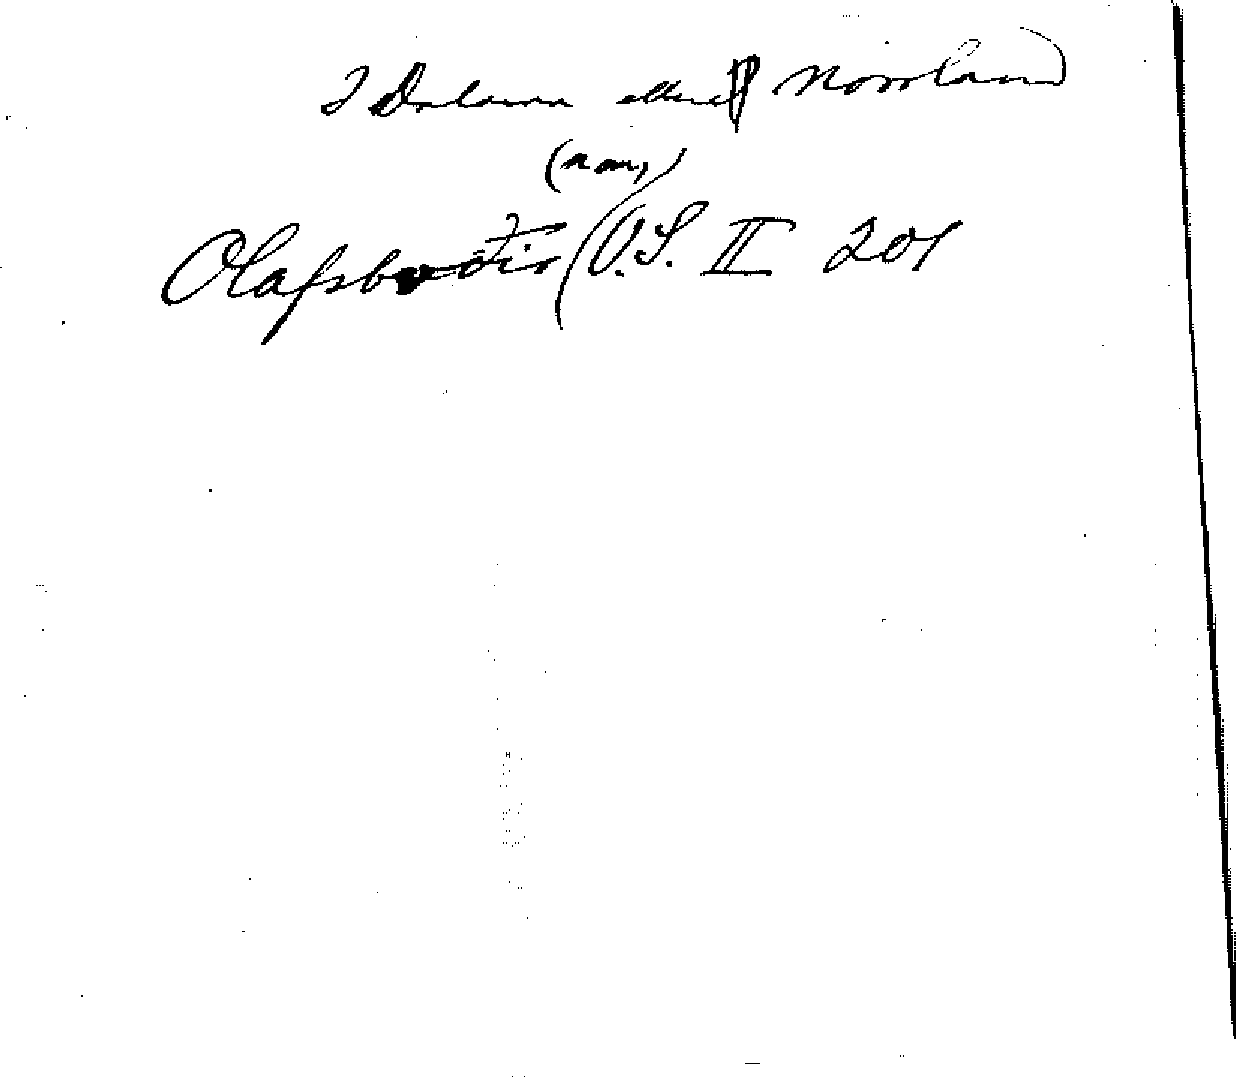 I Dalarna eller Norrland
(nam)
Olafsbodir (O.S. II 201